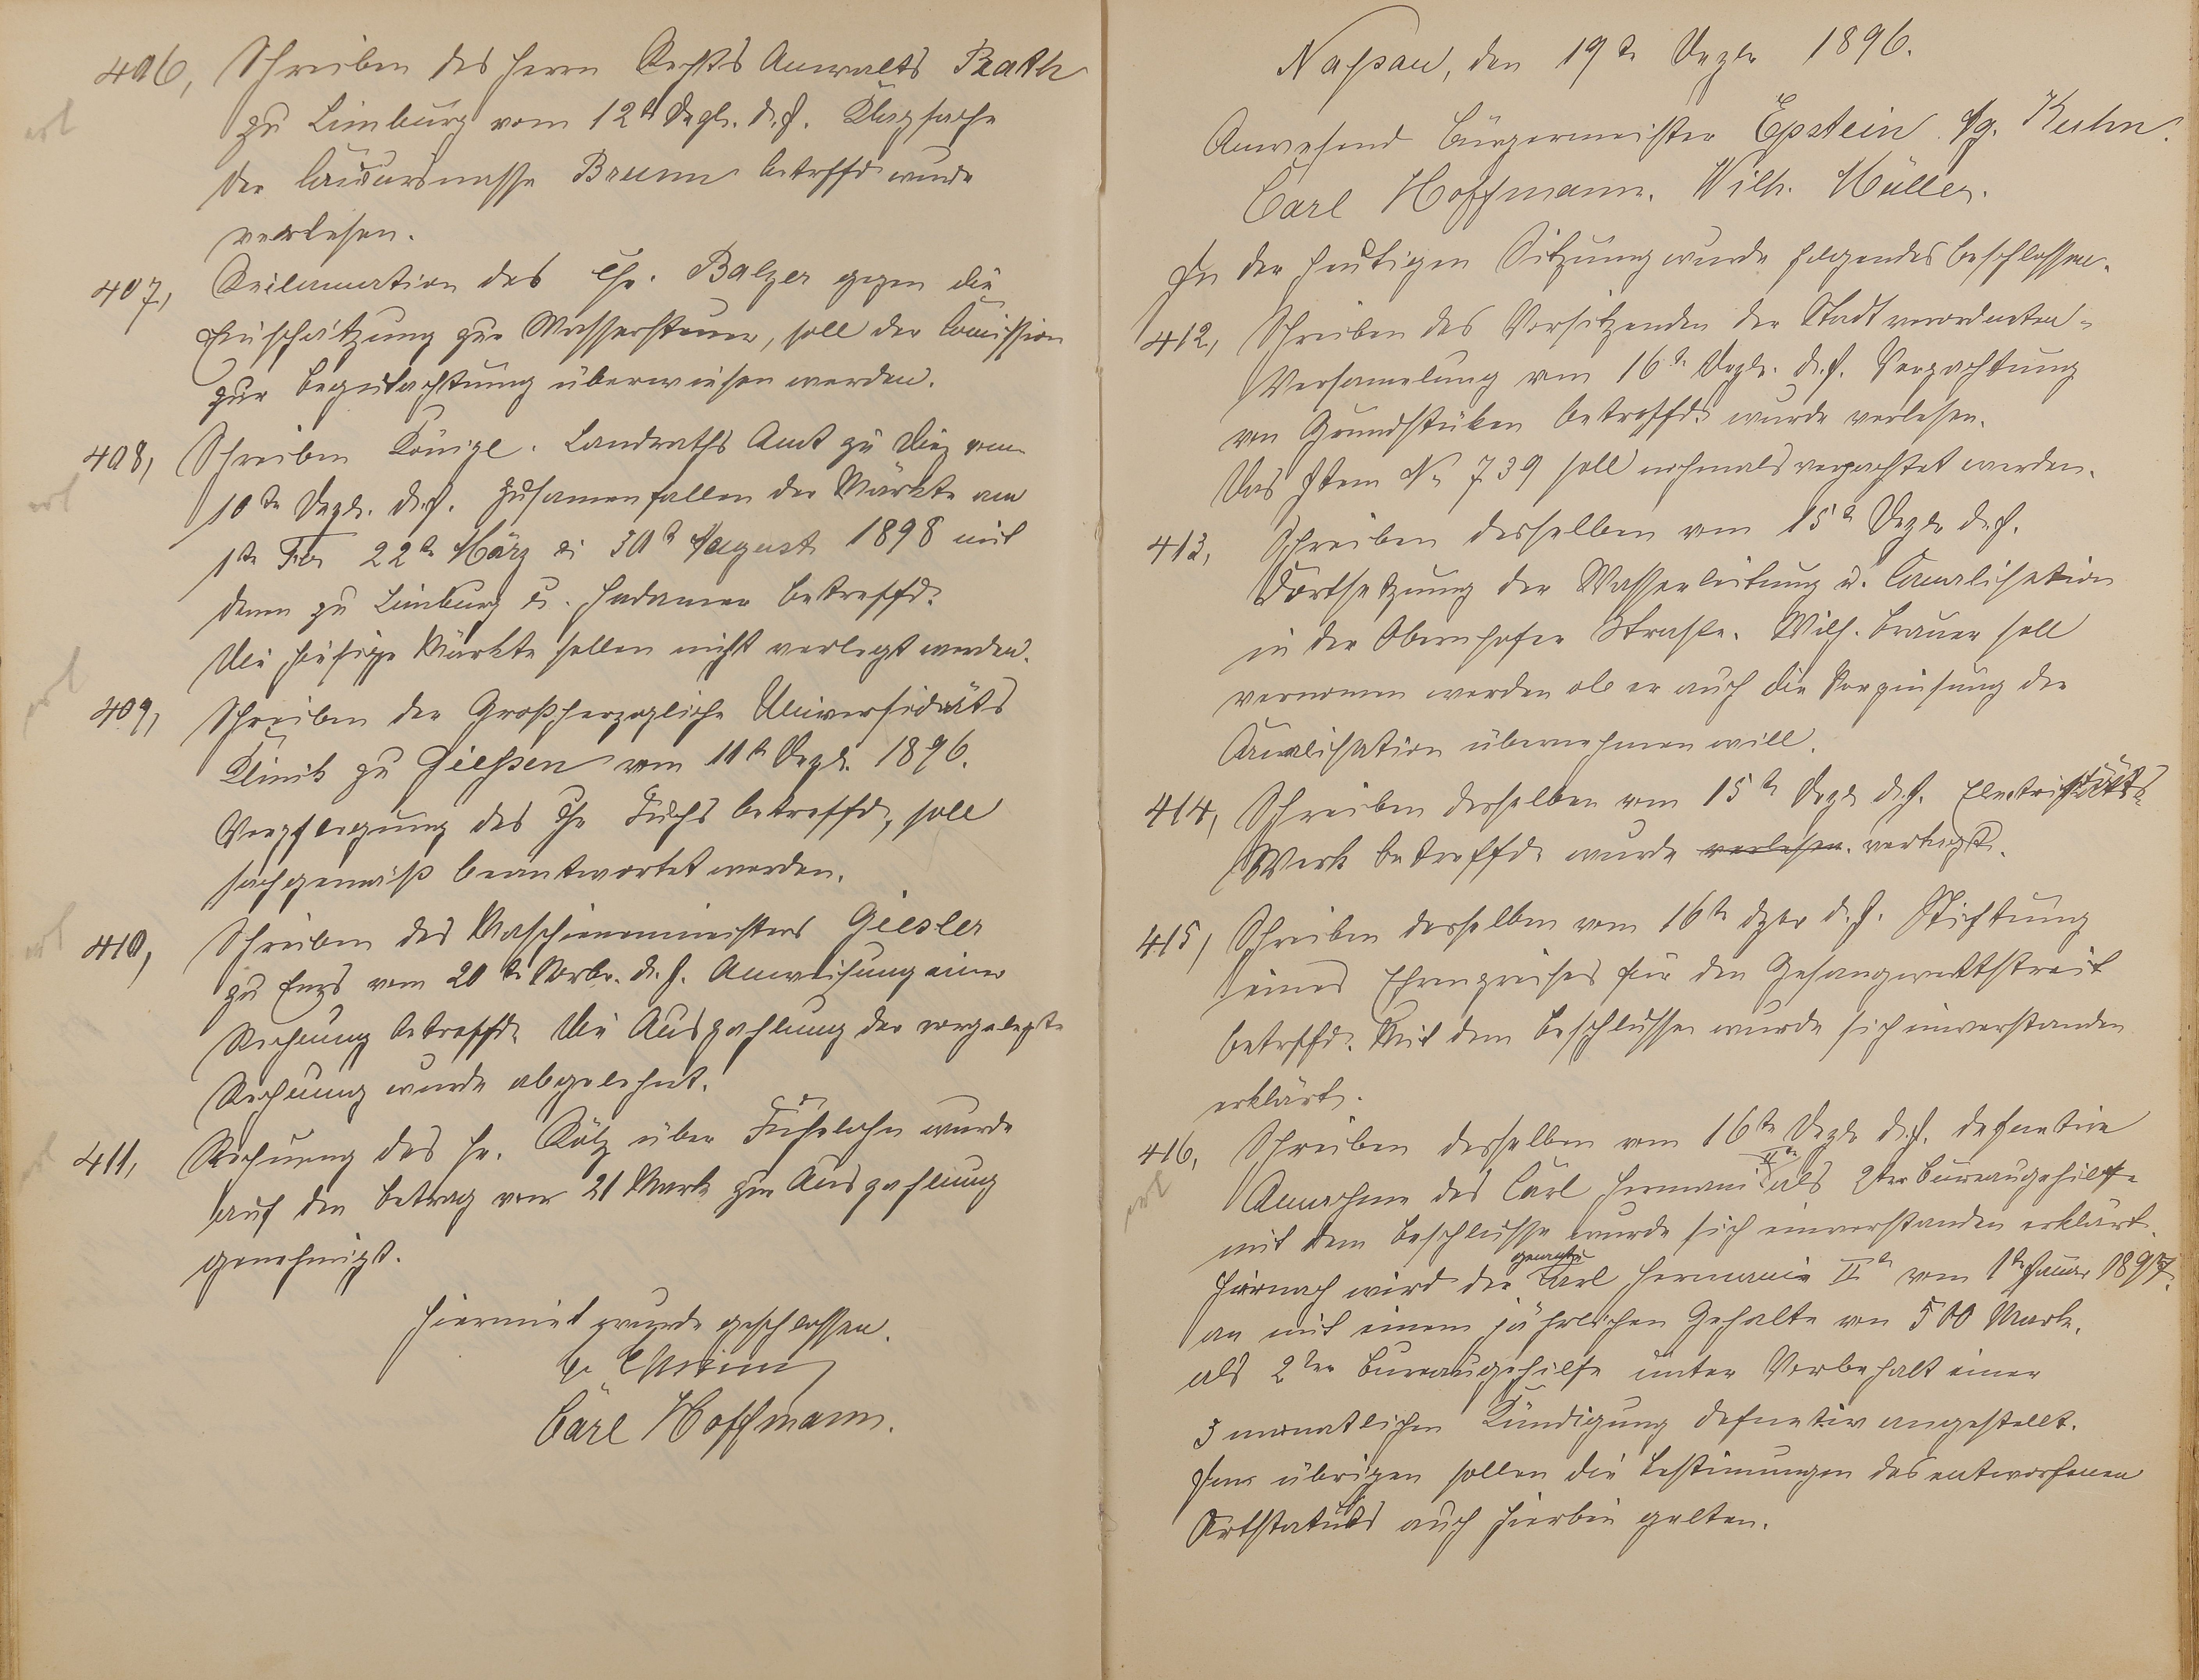 406, Schreiben des Herrn Rechts Anwalts Rath
zu Limburg vom 12t Dezbr. d. J. Klagsache
der Concursmasse Brunn betreffd wurde
verlesen.
407, Reclamation des Chr. Balzer gegen die
Einschätzung zur Wassersteuer, soll der Comission
zur Begutachtung überwiesen werden.
408, Schreiben Königl. Landraths Amt zu Diez vom
10te Dezbr. d. J. Zusamenfallen der Märkte am
1te Febr 22te März u. 30t August 1898 mit
denen zu Limburg u. Hadamar betreffd.
Die hiesige Märkte sollen nicht verlegt werden.
409, Schreiben der Großherzogliche Universidäts
Klinik zu Giessen vom 11te Dezbr. 1896.
Verpflegung des Chr Fuchs betreffd, soll
sachgemäß beantwortet werden.
410, Schreiben des Maschienenmeisters Giesler
zu Ems vom 20te Novbr. d. J. Anweisung einer
Rechnung betreffd. Die Auszahlung der vorgelegte
Rechnung wurde abgelehnt.
411, Rechnung des H. Kölz über Fuhrlohn wurde
auf den Betrag von 21 Mark zur Auszahlung
genehmigt.
Hiermit wurde geschlossen.
Carl Hoffmann.
Nassau, den 19te Dezbr 1896.
Anwesend Bürgermeister Epstein Ag. Kuhn.
Carl Hoffmann. Wilh. Müller.
In der heutigen Sitzung wurde folgendes beschlossen.
412, Schreiben des Vorsitzenden der Stadtverordneten-
Versamelung vom 16te Dezbr. d. J. Verpachtung
von Grundstüken betreffd. wurde verlesen.
Das Item No 739 soll nochmals verpachtet werden.
413, Schreiben desselben vom 15te Dezbr d. J.
Fortsetzung der Wasserleitung u. Canalisation
in der Obernhofer Strasse. Wilh. Brauer soll
vernomen werden ob er auch die Verzinsung der
Canalisation übernehmen will.
414, Schreiben desselben vom 15te Dezbr d. J. Electricitäts-
Werk betreffd. wurde verlesen. vertagt.
415, Schreiben desselben vom 16te Dzbr d. J. Stiftung
eines Ehrenpreises für den Gesangwettstreit
betreffd. Mit dem Beschlusse wurde sich einverstanden
erklärt.
416, Schreiben desselben vom 16te Dezbr d. J. defnetive
Annahme des Carl Hermani IIte als 2ter Bureaugehilfe
mit dem Beschlusse wurde sich einverstanden erklärt.
Hiernach wird der genante Karl Hermanie IIte vom 1te Januar 1897.
an mit einem jährlichen Gehalte von 500 Mark.
als 2ter Bureaugehilfe unter Vorbehalt einer
3 monatlichen Kündigung defnetiv angestellt.
Im übrigen sollen die Bestimungen des entworfenen
Ortsstatuts auch hierbei gelten.